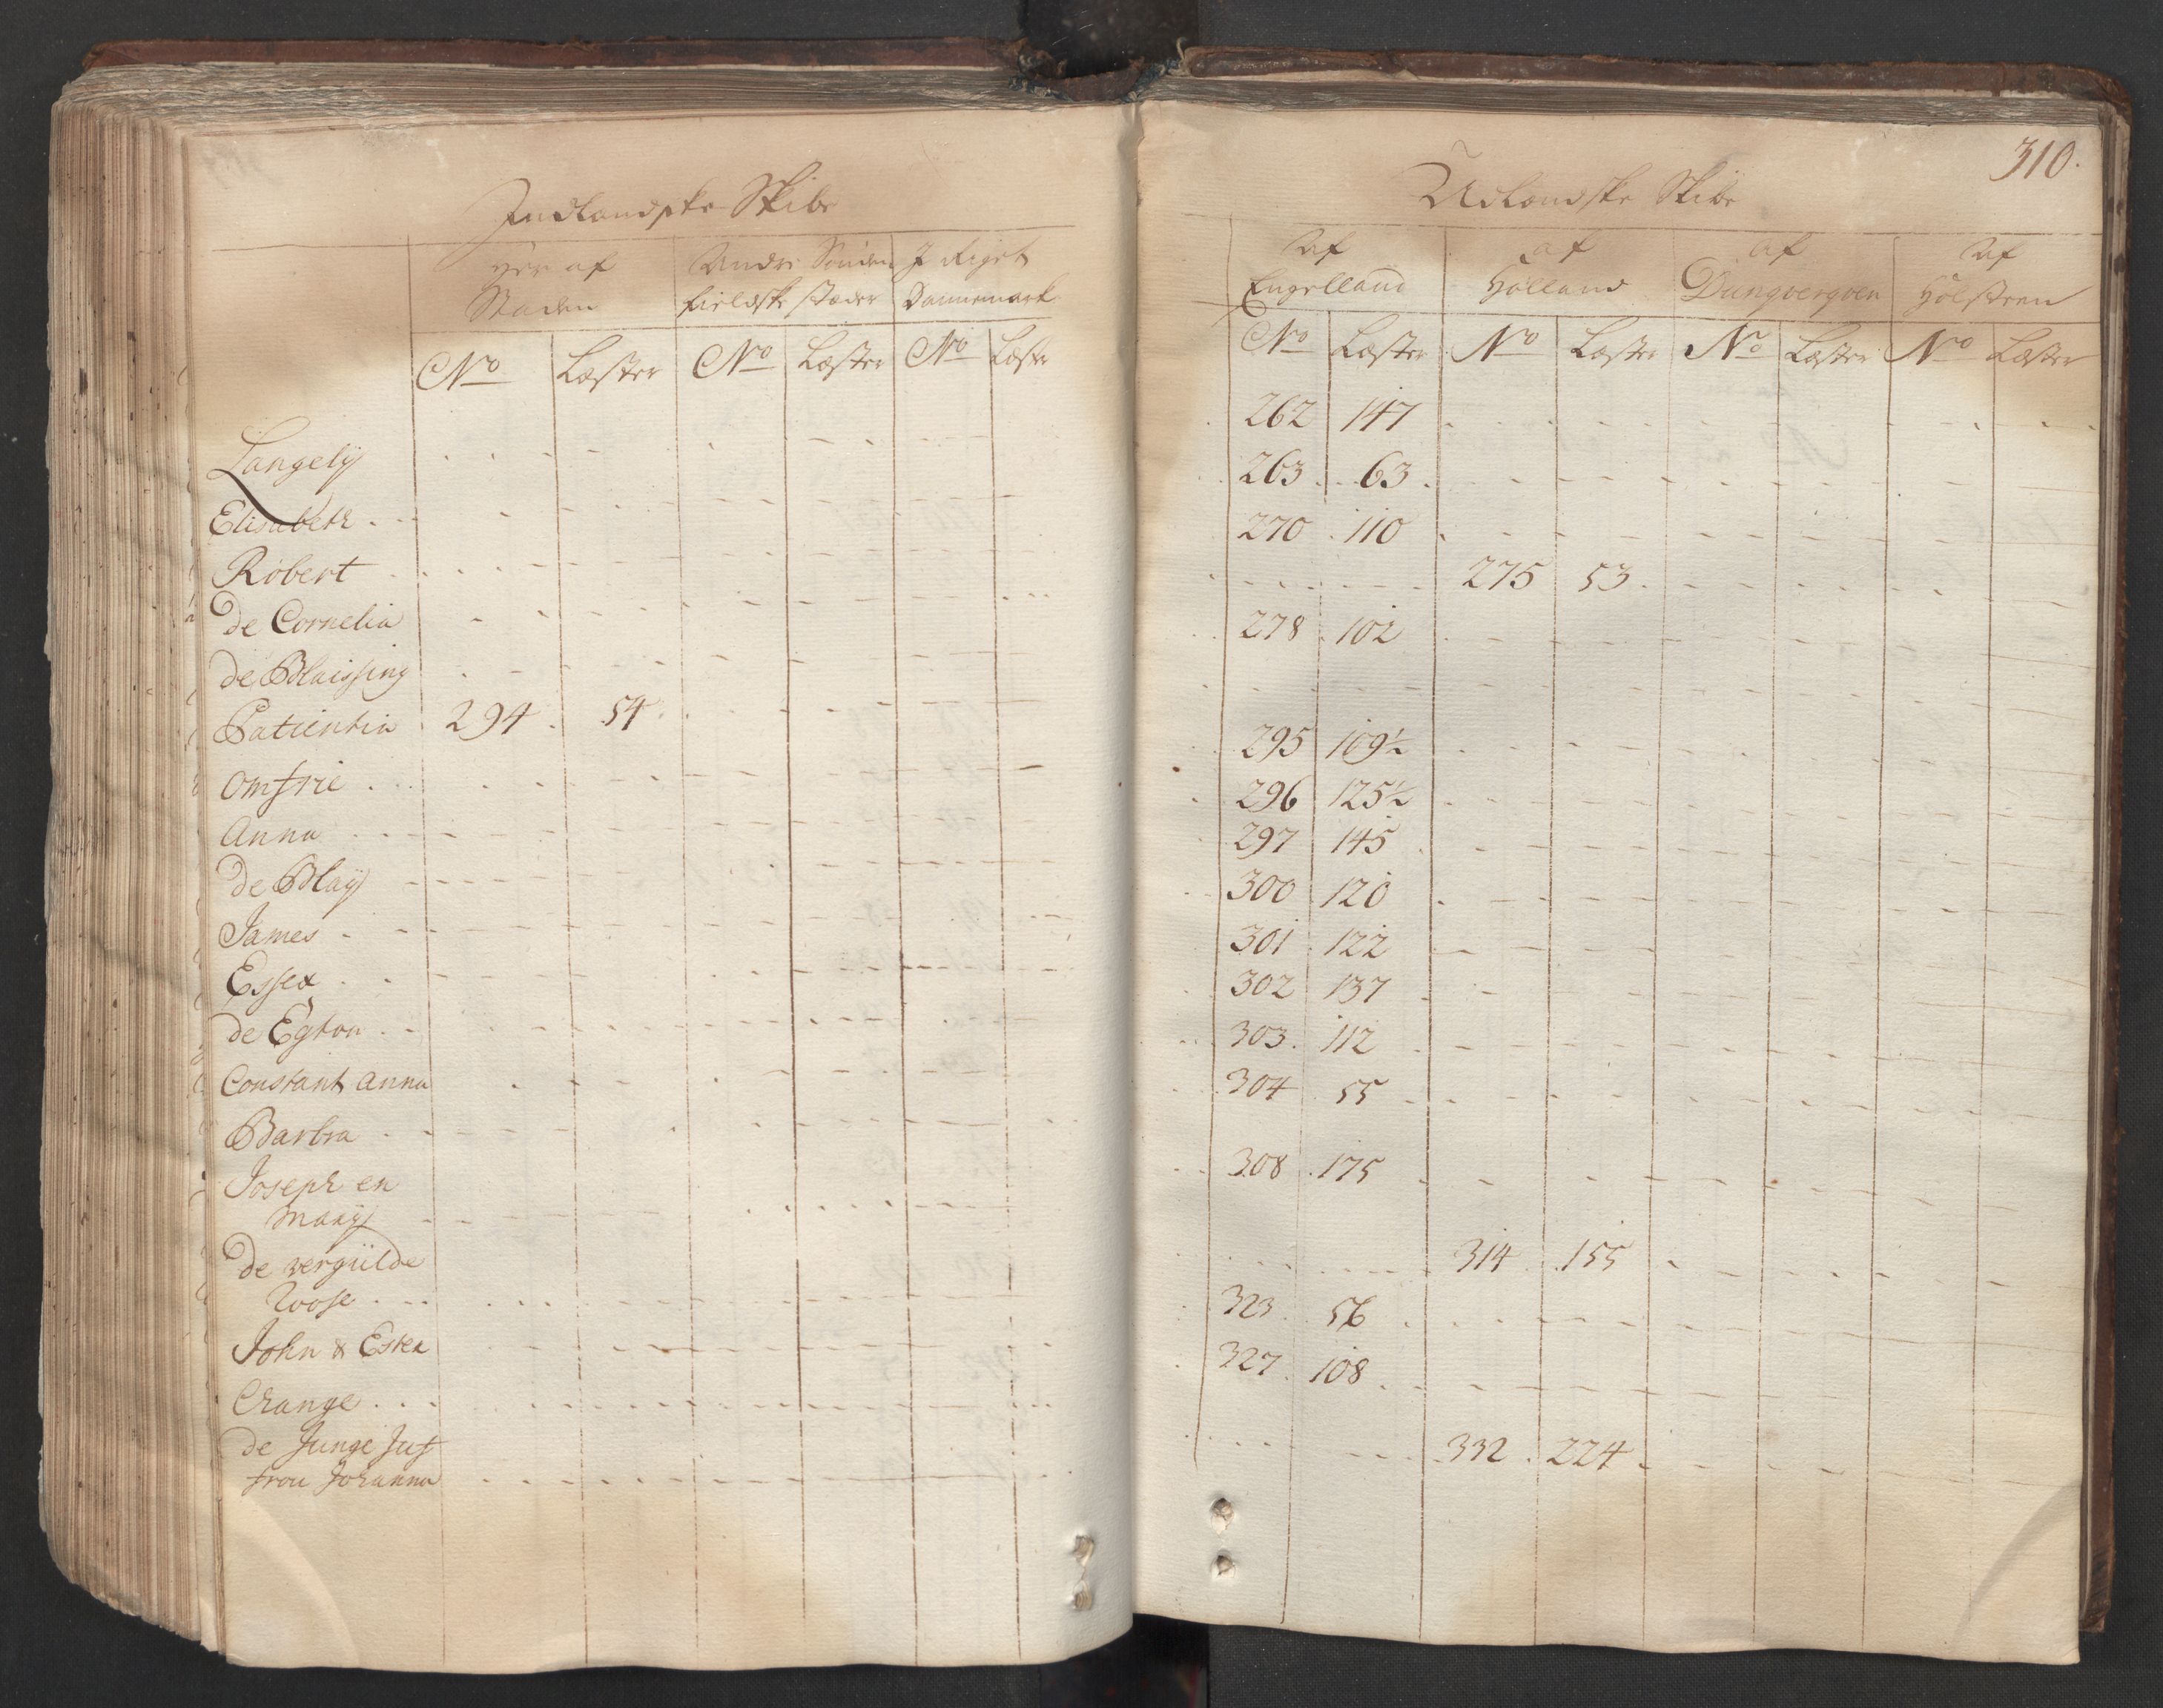 Indlandske Skibe
her af Staden | Andre Sønden fieldske stæder | I Riget Dannemark
No | Læster | No | Læster | No | Læster
Langelÿ
Elisabeth
Robert
de Cornelia
de Blaissing
Patientia 294 54
Omfrie
Anna
de Blaÿ
James
Essex
de Egton
Constant Anna
Barbra
Joseph en
Marÿ
de vergülde
Roose
John & Ester
Change
de Junge Juf
frou Johanna
310.
Udlandske Skibe
Af Engelland | af Holland | af | Af Holsteen
No | Læster | No | Læster | No | Læster | No | Læster
262 147
263 63
270 110
275 53
278 102
295 109½
296 125½
297 145
300 120
301 122
302 137
303 112
304 55
308 175
314 155
323 56
327 108
332 224